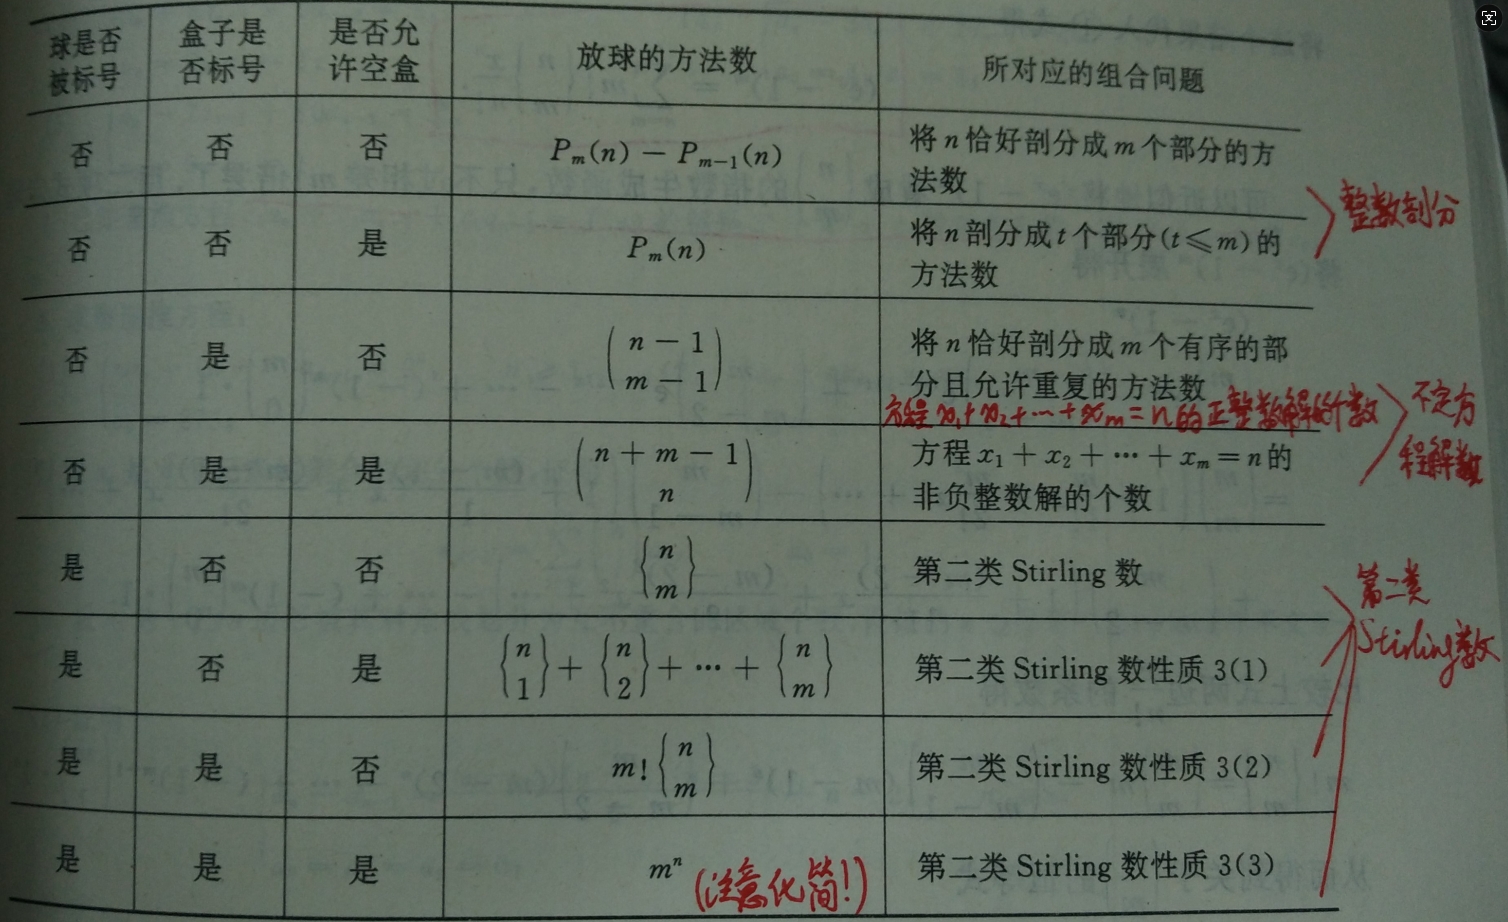 球是否 盒子是 是否允 放球的方法数 所对应的组合问题
被标号 否标号 许空盒
否 否 否 Pₘ(n) − Pₘ₋₁(n) 将 n 恰好剖分成 m 个部分的方
法数
整数剖分
否 否 是 Pₘ(n) 将 n 剖分成 t 个部分(t⩽m)的
方法数
否 是 否 (n − 1 将 n 恰好剖分成 m 个有序的部
m − 1) 分且允许重复的方法数
方程 x₁+x₂+⋯+xₘ=n 的正整数解的个数
不定方
程解数
否 是 是 (n + m − 1 方程 x₁ + x₂ + ⋯ + xₘ = n 的
n) 非负整数解的个数
是 否 否 {n
m} 第二类 Stirling 数
第二类
Stirling数
是 否 是 {n {n {n
1} + 2} + ⋯ + m} 第二类 Stirling 数性质 3(1)
是 是 否 m! {n
m} 第二类 Stirling 数性质 3(2)
是 是 是 mⁿ (注意化简!) 第二类 Stirling 数性质 3(3)